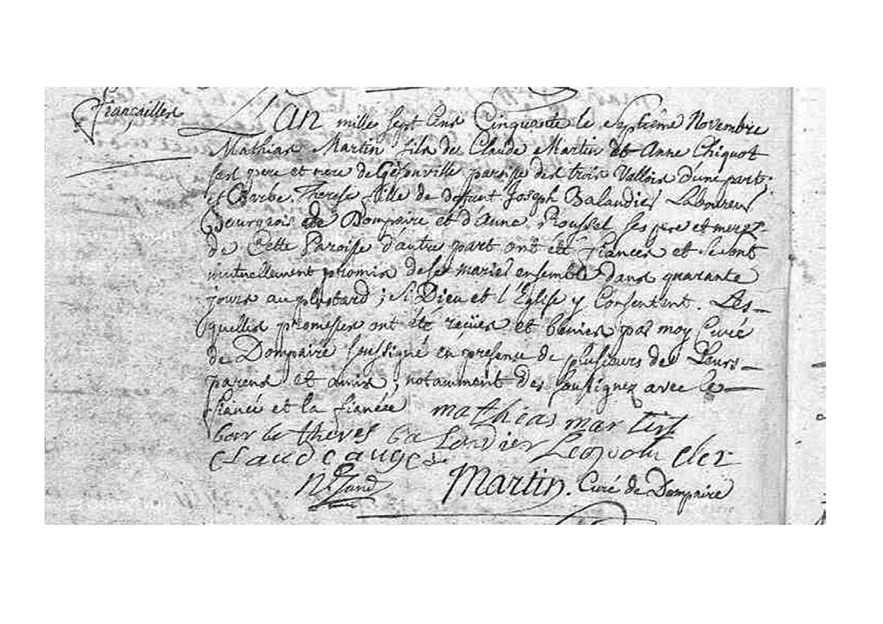 Fiançailles
L'an mille sept cens Cinquante le Septiême Novembre
Mathias Martin fils de Claude Martin et Anne Chiquot
ses pere et mere de Gésonville paroisse des trois Vallois d'une part;
et Barbe Therese fille de defunt Joseph Balaudier Laboureur
Bourgeois de Dompaire et d'Anne Roussel ses pere et mere
de Cette Paroisse d'autre part ont eté fiancés et se sont
mutuellement promis de se marier ensemble dans quarante
jours au plustard; si Dieu et l'Eglise y Consentent. Les-
quelles promesses ont été reçües et benies par moy Curé
de Dompaire soussigné en presence de plusieurs de Leurs
parens et amis; notamment des soussignez avec le
fiancé et la fiancée mathias martin
barbe theres balaudier Leopold
claude
Martin. Curé de Dompaire